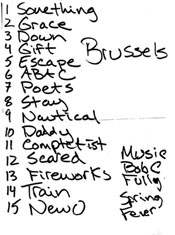 1 Something
2 Grace
3 Down
4 Gift
5 Escape
6 ABTC
7 Poets
8 Stay
9 Nautical
10 Daddy
11 Comptetist
12 Scared
13 Fireworks
14 Train
15 NewO
Brussels
Music
BobC
Fully
Spring
Fever